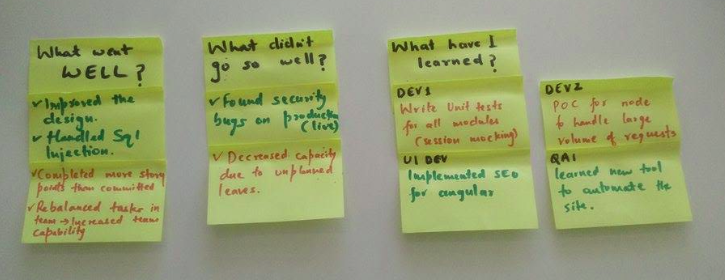 What went
WELL?
✓ Improved the
design.
✓ Handled Sql
Injection.
✓ Completed more story
points than committed
✓ Rebalanced tasks in
team → Increased team
capability
What didn't
go so well?
✓ Found security
bugs on production
(live)
✓ Decreased capacity
due to unplanned
leaves.
What have I
learned?
DEV1
Write Unit tests
for all modules
(session mocking)
UI DEV
Implemented SEO
for angular
DEV2
POC for node
to handle large
volume of requests
QA1
learned new tool
to automate the
site.